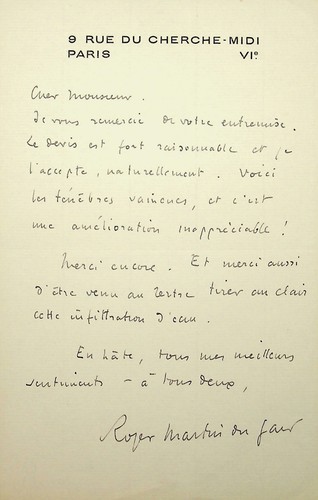 9 RUE DU CHERCHE-MIDI
PARIS VIe
Cher Monsieur.
Je vous remercie de votre entremise.
Le devis est fort raisonnable et je
l'accepte, naturellement. Voici
les ténèbres vaincues, et c'est
une amélioration inappréciable !
Merci encore. Et merci aussi
d'être venu au Tertre tirer au clair
cette infiltration d'eau.
En hâte, tous mes meilleurs
sentiments — à tous deux,
Roger Martin du Gard